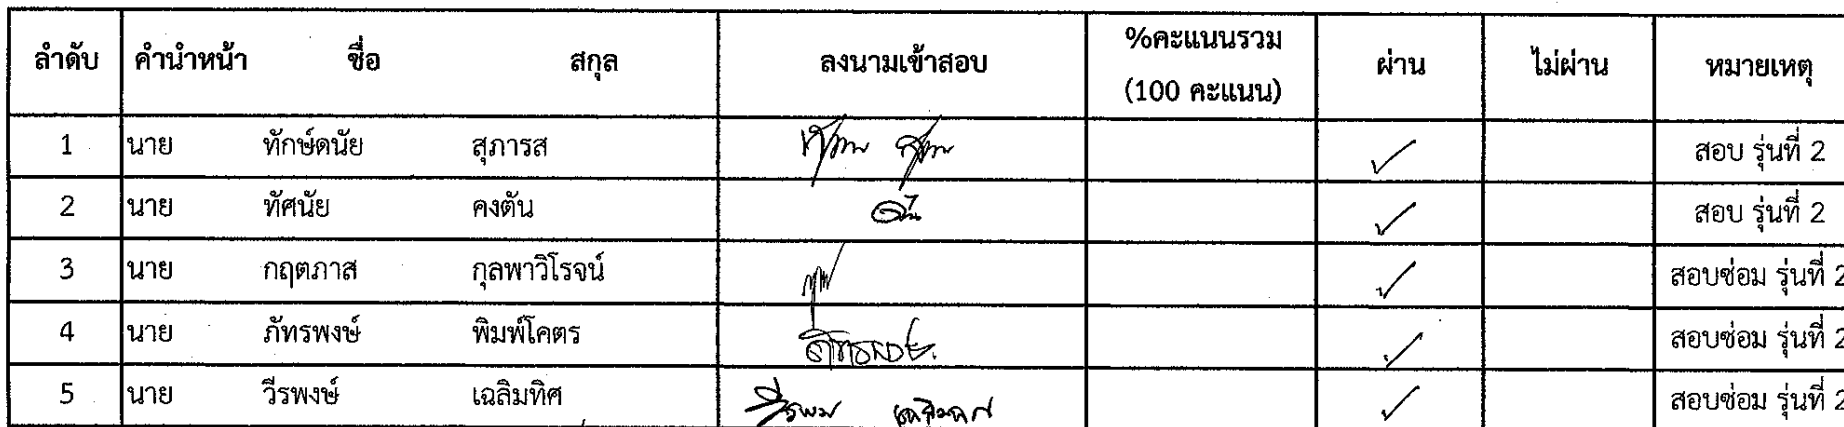 ลำดับ คำนำหน้า ชื่อ สกุล ลงนามเข้าสอบ %คะแนนรวม (100 คะแนน) ผ่าน ไม่ผ่าน หมายเหตุ
1 นาย ทักษ์ดนัย สุภารส ✓ สอบ รุ่นที่ 2
2 นาย ทัศนัย คงตัน ✓ สอบ รุ่นที่ 2
3 นาย กฤตภาส กุลพาวิโรจน์ ✓ สอบซ่อม รุ่นที่ 2
4 นาย ภัทรพงษ์ พิมพ์โคตร ✓ สอบซ่อม รุ่นที่ 2
5 นาย วีรพงษ์ เฉลิมทิศ ✓ สอบซ่อม รุ่นที่ 2